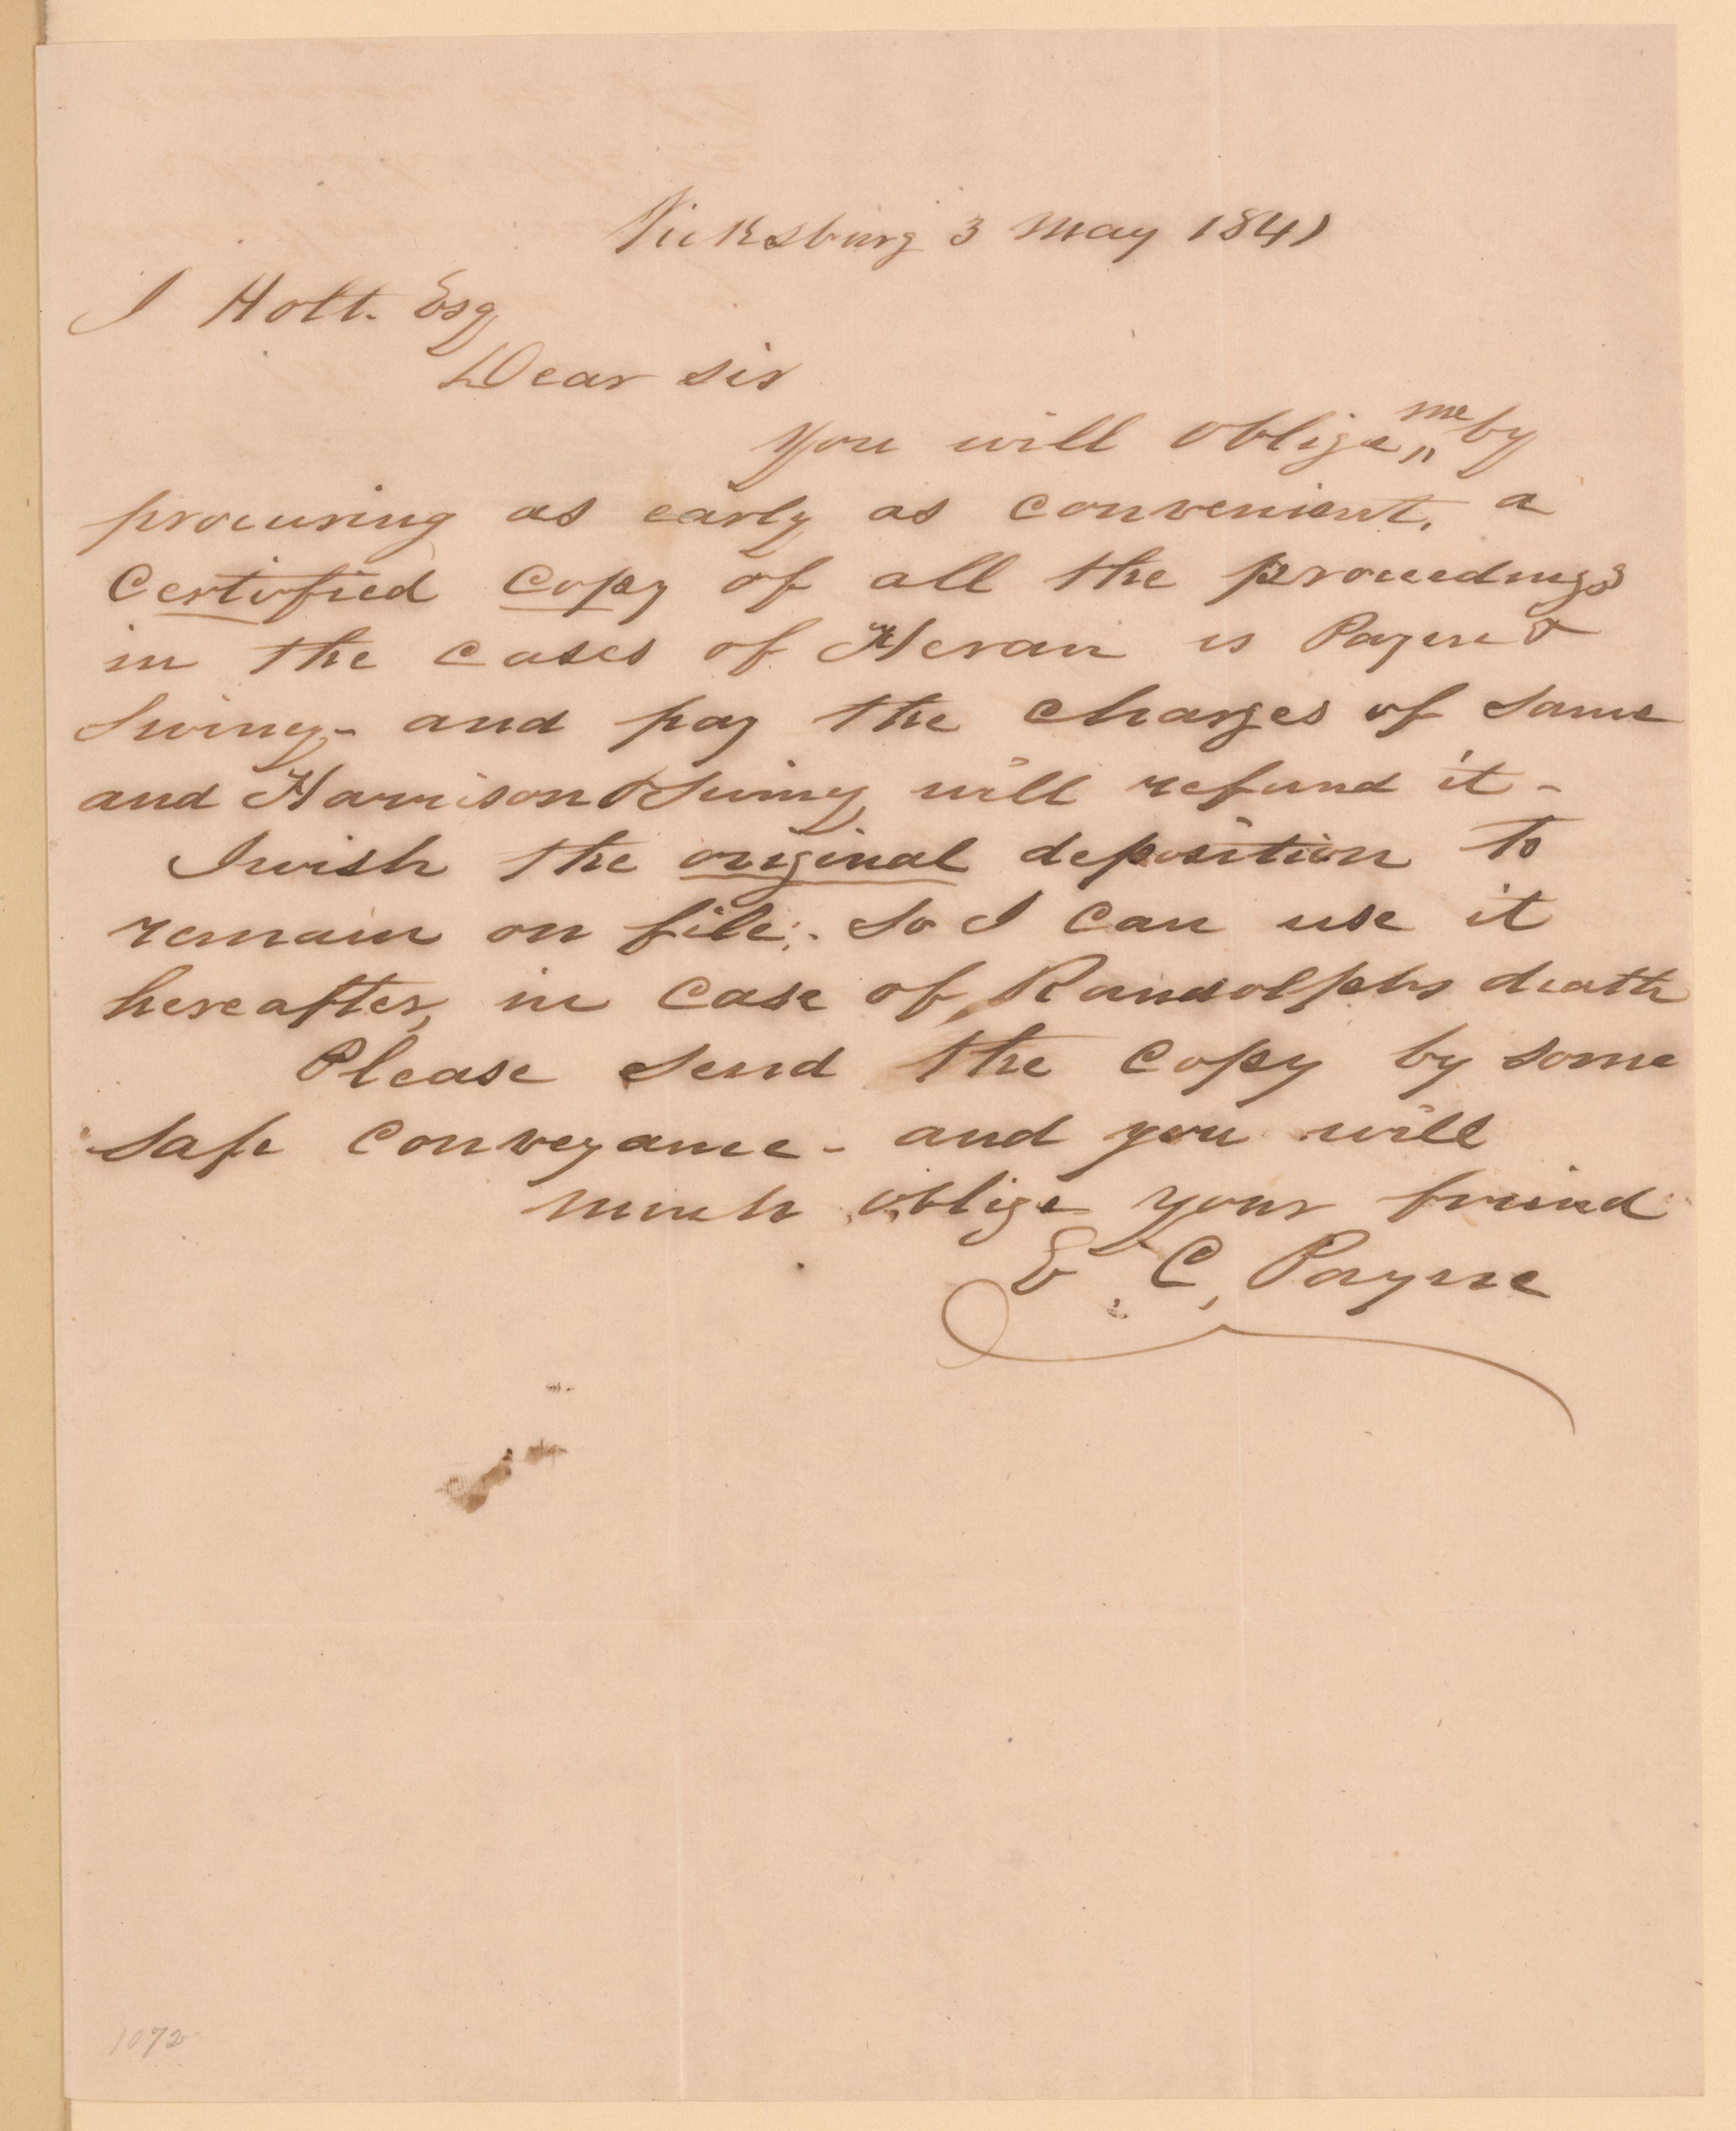 Vicksburg 3 May 1841
J Holt. Esq
Dear sir
You will oblige me by
procuring as early as convenient, a
Certified Copy of all the proceedings
in the cases of Heran vs Payne &
Swiney - and pay the charges of same
and Harrison & Swiney will refund it -
I wish the original deposition to
remain on file: So I can use it
hereafter, in case of Randolphs death
Please send the copy by some
safe conveyance - and you will
much oblige your friend
E. C. Payne
1072